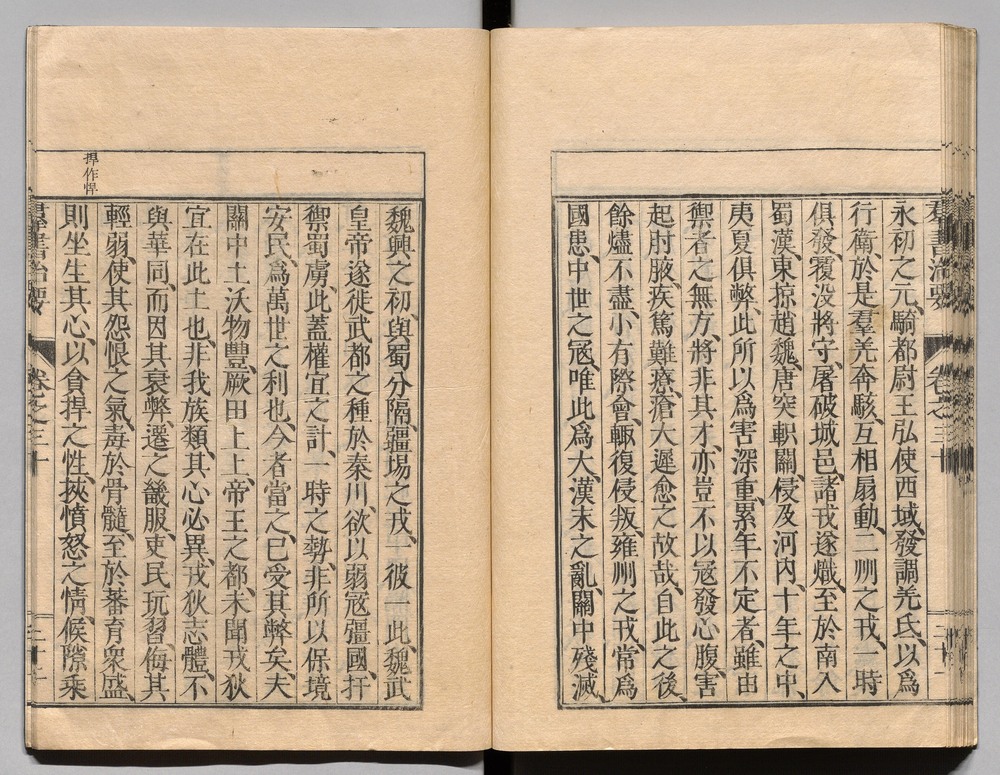 羣書治要 卷之三十
永初之元、騎都尉王弘使西域、發調羌氐、以爲
行衛、於是羣羌奔駭、互相扇動、二州之戎、一時
俱發、覆没將守、屠破城邑、諸戎遂熾、至於南入
蜀漢、東掠趙魏、唐突軹關、侵及河内、十年之中、
夷夏俱弊、此所以爲害深重、累年不定者、雖由
禦者之無方、將非其才、亦豈不以寇發心腹、害
起肘腋、疾篤難療、瘡大遲愈之故哉、自此之後、
餘燼不盡、小有際會、輙復侵叛、雍州之戎、常爲
國患、中世之寇、唯此爲大、漢末之亂、關中殘滅、
魏興之初、與蜀分隔、疆場之戎、一彼一此、魏武
皇帝遂徙武都之種於秦川、欲以弱寇彊國、扞
禦蜀虜、此蓋權宜之計、一時之勢、非所以保境
安民、爲萬世之利也、今者當之、已受其弊矣、夫
關中土沃物豐、厥田上上、帝王之都、未聞戎狄
宜在此土也、非我族類、其心必異、戎狄志體、不
與華同、而因其衰弊、遷之畿服、吏民玩習、侮其
輕弱、使其怨恨之氣、毒於骨髓、至於蕃育衆盛、
則坐生其心、以貪捍之性、挾憤怒之情、候隙乘
捍作悍
羣書治要 卷之三十